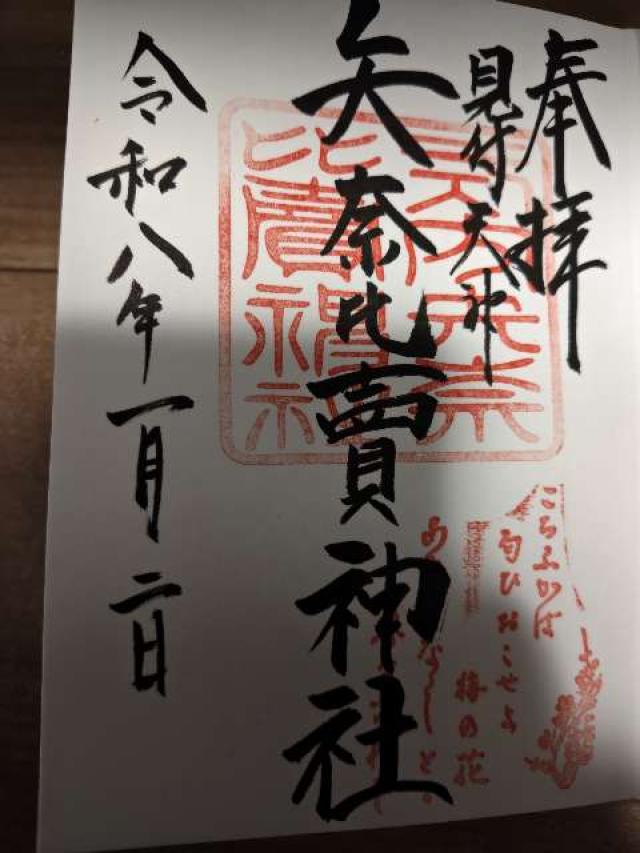 奉拝
見付天神
矢奈比賣神社
令和八年一月二日
こちふかば
匂ひおこせよ
梅の花